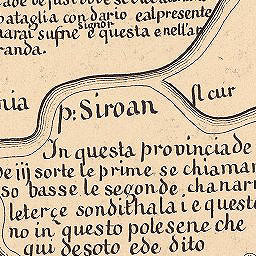 bataglia con dario ealpresente
signor
narai sufne e questa e nell'ar
randa.
nia
p: Siroan
fl cur
In questa provincia de
de iij sorte le prime se chiamar
so basse le segonde chanari
leterçe sondithala i e queste
no in questo polesene che
qui desoto ede dito